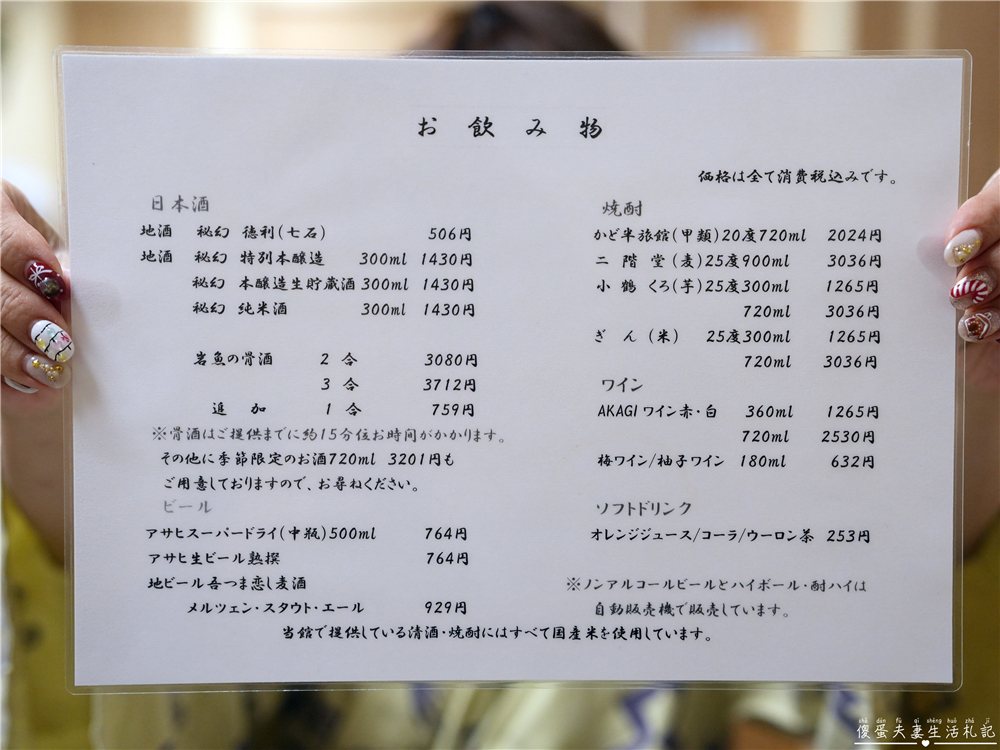 お飲み物
価格は全て消費税込みです。
日本酒
地酒 秘幻 徳利(七石) 506円
地酒 秘幻 特別本醸造 300ml 1430円
秘幻 本醸造生貯蔵酒 300ml 1430円
秘幻 純米酒 300ml 1430円
岩魚の骨酒 2合 3080円
3合 3712円
追加 1合 759円
※骨酒はご提供までに約15分位お時間がかかります。
その他に季節限定のお酒720ml 3201円も
ご用意しておりますので、お尋ねください。
ビール
アサヒスーパードライ(中瓶)500ml 764円
アサヒ生ビール熟撰 764円
地ビール吾つま恋し麦酒
メルツェン・スタウト・エール 929円
焼酎
かど半旅館(甲類)20度720ml 2024円
二階堂(麦)25度900ml 3036円
小鶴くろ(芋)25度300ml 1265円
720ml 3036円
ぎん(米) 25度300ml 1265円
720ml 3036円
ワイン
AKAGIワイン赤・白 360ml 1265円
720ml 2530円
梅ワイン/柚子ワイン 180ml 632円
ソフトドリンク
オレンジジュース/コーラ/ウーロン茶 253円
※ノンアルコールビールとハイボール・酎ハイは
自動販売機で販売しています。
当館で提供している清酒・焼酎にはすべて国産米を使用しています。
shǎ dàn fū qī shēng huó zhá jì
傻蛋夫妻生活札記